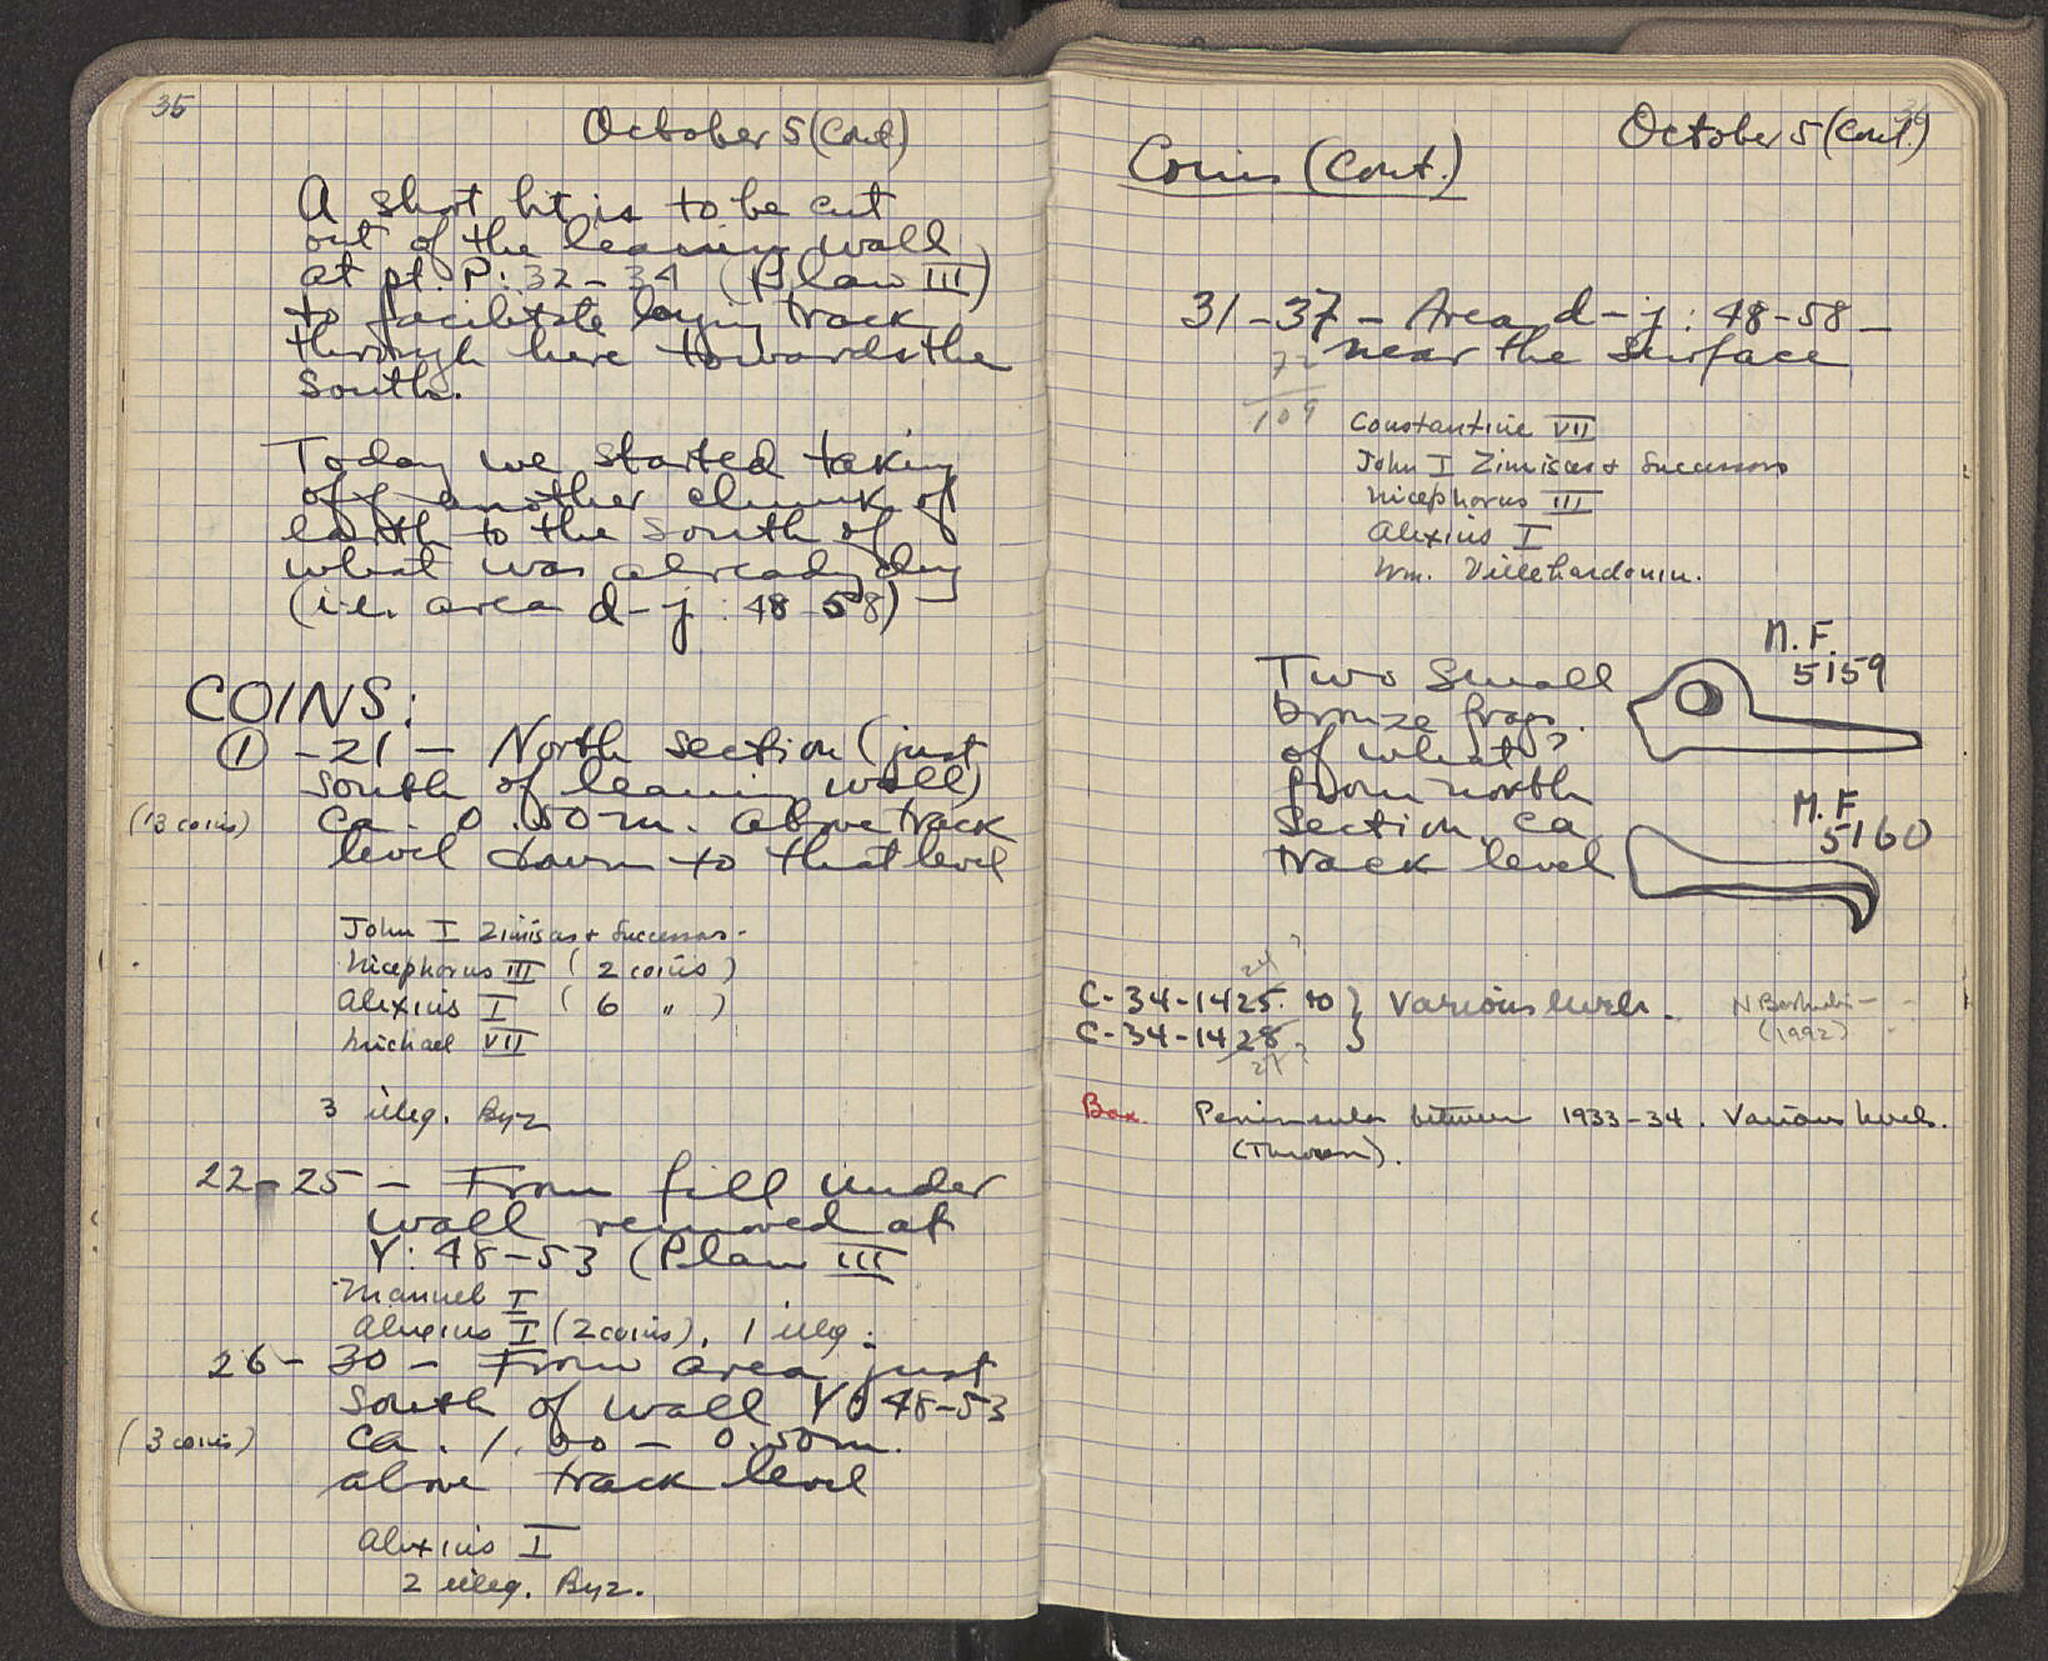 35
October 5 (Cont)
A short bit is to be cut
out of the leaning wall
at pt. P: 32-34 (Plan III)
to facilitate laying track
through here towards the
south.
Today we started taking
off another chunk of
earth to the south of
what was already dug
(i.e. area d-j: 48-58)
COINS:
① -21 - North section (just
south of leaning wall)
(13 coins) Ca. 0.50 m. above track
level down to that level
John I Zimisces + Successors -
Nicephorus III (2 coins)
Alexius I (6 " )
Michael VII
3 illeg. Byz
22-25 - From fill under
wall removed at
Y: 48-53 (Plan III
Manuel I
Alexius I (2 coins), 1 illeg.
26-30 - From area just
south of wall Y: 48-53
(3 coins) Ca. 1.00 - 0.50 m.
above track level
Alexius I
2 illeg. Byz.
36
October 5 (Cont.)
Coins (Cont.)
31-37 - Area d-j: 48-58 -
near the surface
72
109
Constantine VII
John I Zimisces + Successors
Nicephorus III
Alexius I
Wm. Villehardouin.
Two small
bronze frags.
of what?
from north
section, ca
track level
M.F.
5159
M.F.
5160
24 ?
C-34-1425 to } Various levels.
C-34-1428. }
27 ?
(1992)
Box. Peninsula between 1933-34. Various levels.